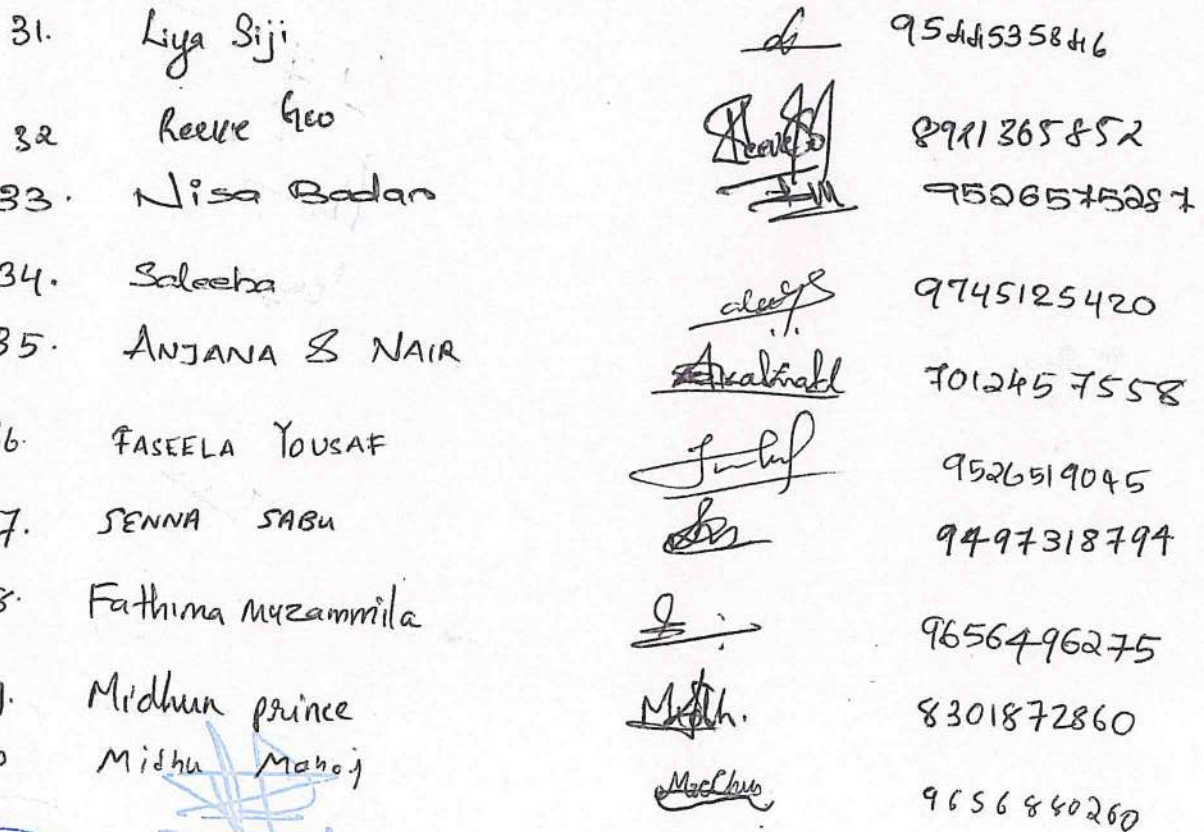 31. Liya Siji 9544535846
32 Reeve Geo 8921365852
33. Nisa Badar 9526575287
34. Saleeba 9745125420
35. ANJANA S NAIR 7012457558
6. FASEELA YOUSAF 9526519045
7. SENNA SABU 9497318794
8. Fathima Muzammila 9656496275
Midhun prince Midh. 8301872860
Midhu Manoj 9656840260